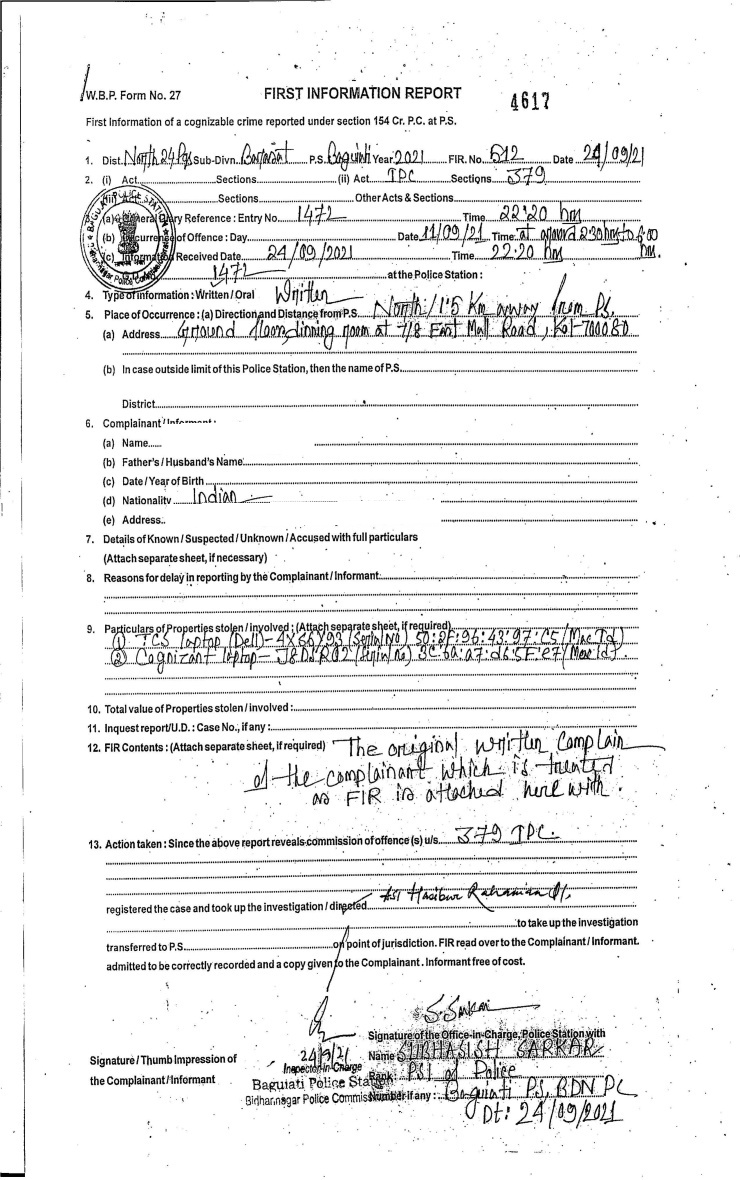 W.B.P. Form No. 27
FIRST INFORMATION REPORT
4617
First Information of a cognizable crime reported under section 154 Cr. P.C. at P.S.
1. Dist. North 24 Pgs Sub-Divn. Barasat P.S. Baguiati Year 2021 FIR. No. 612 Date 24/09/21
2. (i) Act Sections (ii) Act IPC Sections 379
(iii) Act Sections Other Acts & Sections
3. (a) General Diary Reference : Entry No. 1472 Time 22:20 hrs
(b) Occurrence of Offence : Day Date 11/09/21 Time at around 2:30 hrs to 6:00 hrs.
(c) Information Received Date 24/09/2021 Time 22:20 hrs
1472 at the Police Station :
4. Type of information : Written / Oral Written
5. Place of Occurrence : (a) Direction and Distance from P.S. North / 1.5 Km away from PS.
(a) Address Ground floor dinning room at 7/8 East Mall Road, Kol-700080
(b) In case outside limit of this Police Station, then the name of P.S.
District
6. Complainant / Informant :
(a) Name
(b) Father's / Husband's Name
(c) Date / Year of Birth
(d) Nationality Indian
(e) Address
7. Details of Known / Suspected / Unknown / Accused with full particulars
(Attach separate sheet, if necessary)
8. Reasons for delay in reporting by the Complainant / Informant
9. Particulars of Properties stolen / involved : (Attach separate sheet, if required)
① TCS laptop (Dell)- 4X56Y93 (Serial No) 50:2F:96:43:97:C5 (Mac Id)
② Cognizant laptop - (Serial no) (Mac Id).
10. Total value of Properties stolen / involved :
11. Inquest report/U.D. : Case No., if any :
12. FIR Contents : (Attach separate sheet, if required) The original written complain
of the complainant which is treated
as FIR is attached here with.
13. Action taken : Since the above report reveals commission of offence (s) u/s 379 IPC.
registered the case and took up the investigation / directed ASI Hasibur Rahaman
to take up the investigation
transferred to P.S. on point of jurisdiction. FIR read over to the Complainant / Informant.
admitted to be correctly recorded and a copy given to the Complainant. Informant free of cost.
S. Sarkar
Signature of the Office-in-Charge, Police Station with
24/9/21
Name SUBHASISH SARKAR
Signature / Thumb Impression of
Inspector-in-Charge
Rank: PSI of Police
the Complainant / Informant
Baguiati Police Station
Number if any : Baguiati PS, BDN PC
Bidhannagar Police Commissionerate
Dt: 24/09/2021